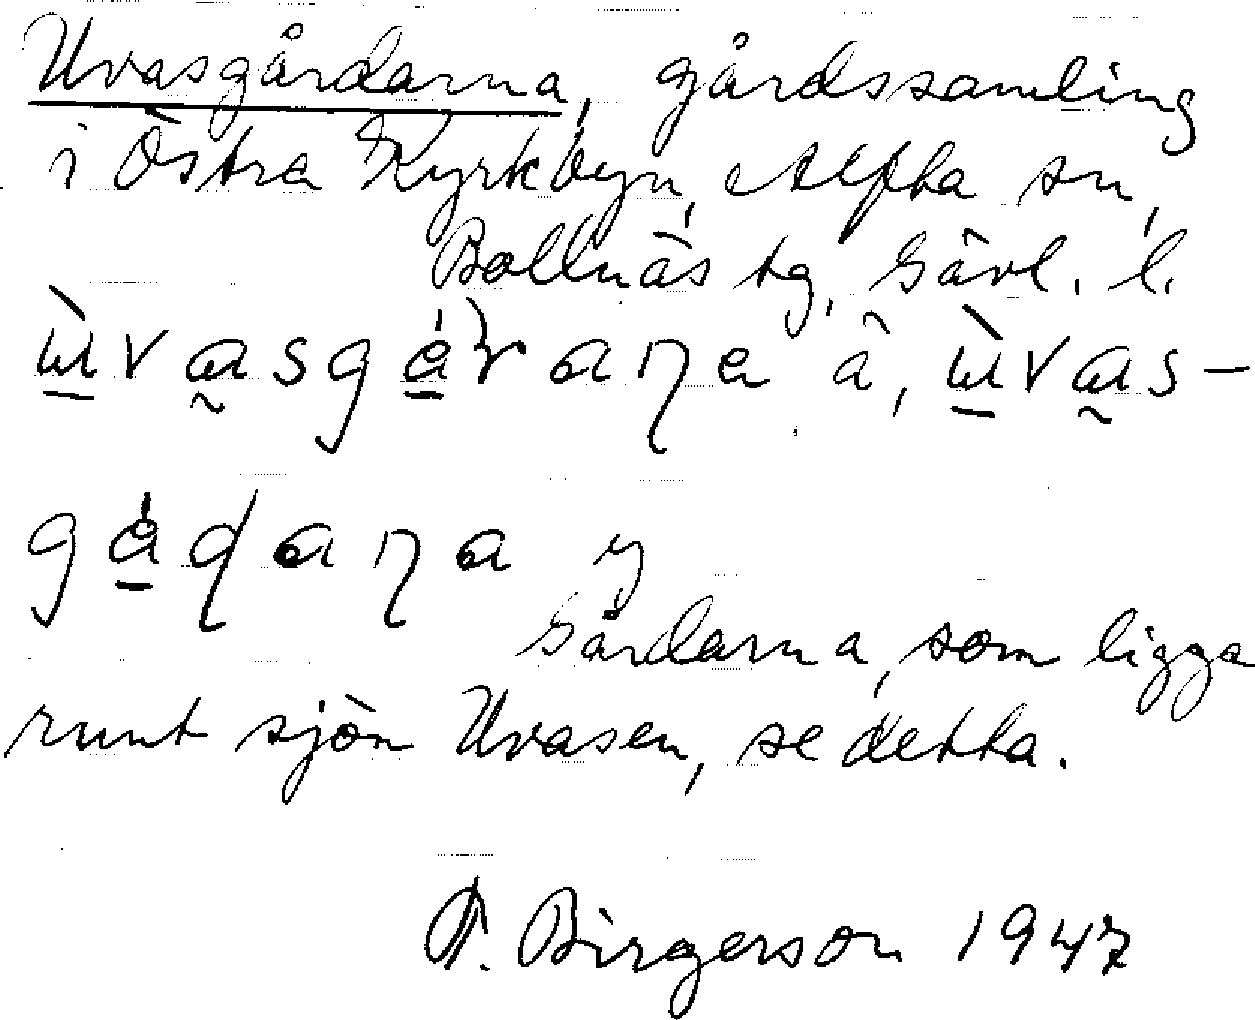 Uvasgårdarna, gårdssamling
i Östra Kyrkbyn, Alfta sn,
Bollnäs tg, Gävl. l.
ɯ̱̀va̰sgá̱ʼraɳa ä, ɯ̱̀va̰s-
gá̱ɖaɳa y
Gårdarna, som ligga
runt sjön Uvasen, se detta.
Birgerson 1947